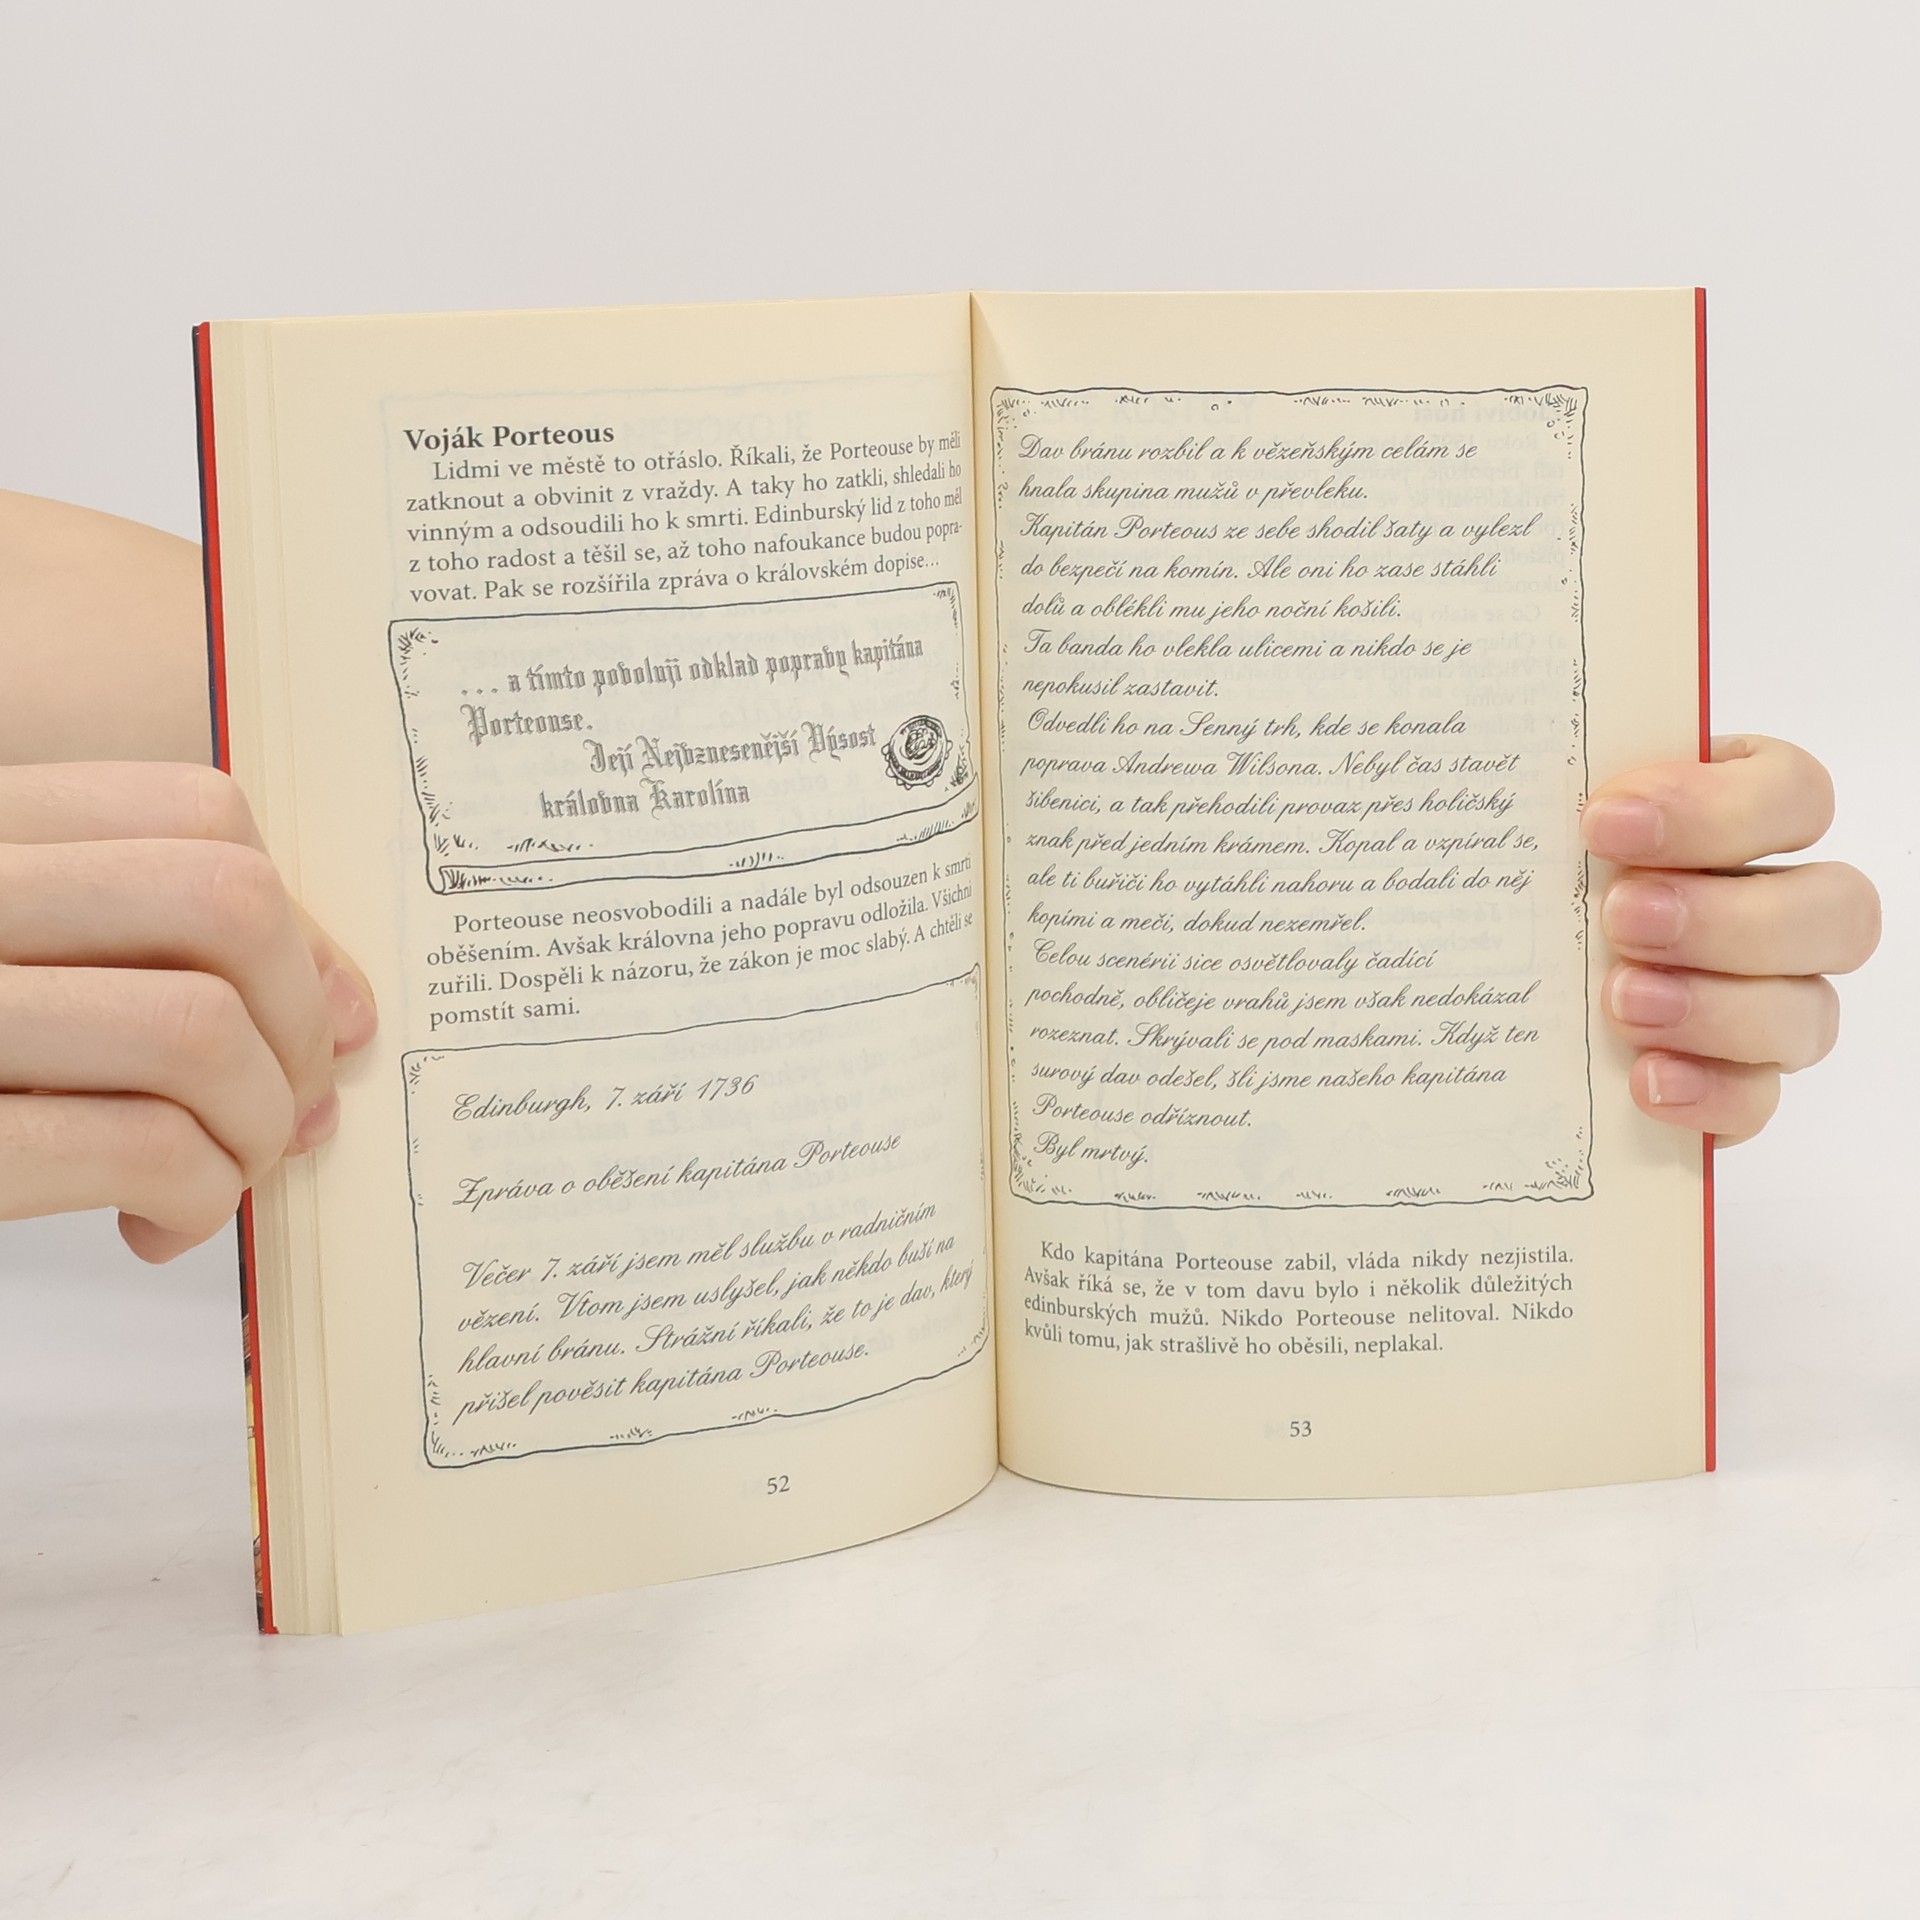 Voják Porteous
Lidmi ve městě to otřáslo. Říkali, že Porteouse by měli
zatknout a obvinit z vraždy. A taky ho zatkli, shledali ho
vinným a odsoudili ho k smrti. Edinburský lid z toho měl
z toho radost a těšil se, až toho nafoukance budou popra-
vovat. Pak se rozšířila zpráva o královském dopise...
... a tímto povoluji odklad popravy kapitána
Porteouse.
Její Nejvznesenější Výsost
královna Karolína
Porteouse neosvobodili a nadále byl odsouzen k smrti
oběšením. Avšak královna jeho popravu odložila. Všichni
zuřili. Dospěli k názoru, že zákon je moc slabý. A chtěli se
pomstít sami.
Edinburgh, 7. září 1736
Zpráva o oběšení kapitána Porteouse
Večer 7. září jsem měl službu v radničním
vězení. Vtom jsem uslyšel, jak někdo buší na
hlavní bránu. Strážní říkali, že to je dav, který
přišel pověsit kapitána Porteouse.
52
Dav bránu rozbil a k vězeňským celám se
hnala skupina mužů v převleku.
Kapitán Porteous ze sebe shodil šaty a vylezl
do bezpečí na komín. Ale oni ho zase stáhli
dolů a oblékli mu jeho noční košili.
Ta banda ho vlekla ulicemi a nikdo se je
nepokusil zastavit.
Odvedli ho na Senný trh, kde se konala
poprava Andrewa Wilsona. Nebyl čas stavět
šibenici, a tak přehodili provaz přes holičský
znak před jedním krámem. Kopal a vzpíral se,
ale ti buřiči ho vytáhli nahoru a bodali do něj
kopími a meči, dokud nezemřel.
Celou scenérii sice osvětlovaly čadící
pochodně, obličeje vrahů jsem však nedokázal
rozeznat. Skrývali se pod maskami. Když ten
surový dav odešel, šli jsme našeho kapitána
Porteouse odříznout.
Byl mrtvý.
Kdo kapitána Porteouse zabil, vláda nikdy nezjistila.
Avšak říká se, že v tom davu bylo i několik důležitých
edinburských mužů. Nikdo Porteouse nelitoval. Nikdo
kvůli tomu, jak strašlivě ho oběsili, neplakal.
53